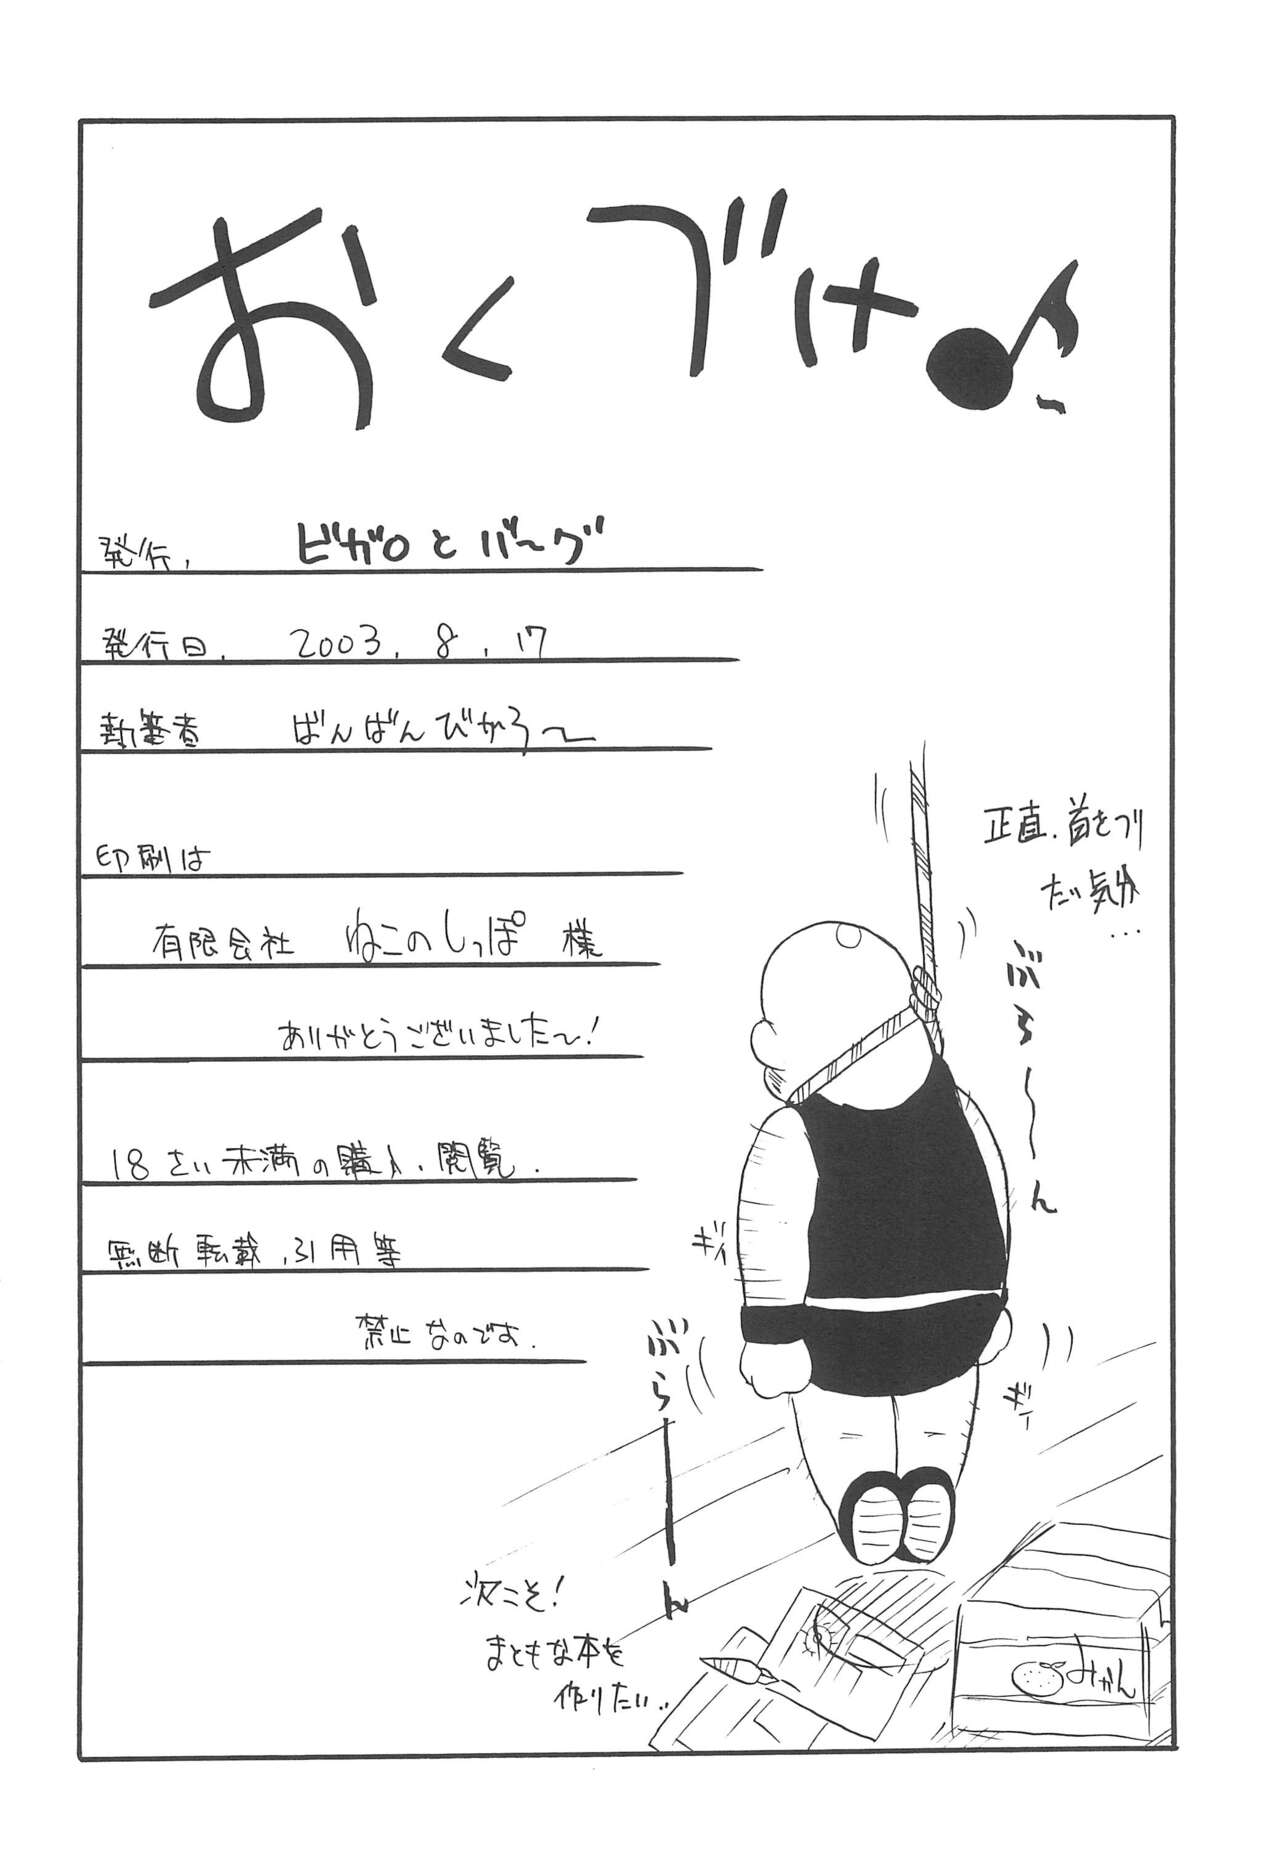 おくづけ♪
発行, ビガロとバーグ
発行日. 2003. 8. 17
執筆者 ばんばんびがろ〜
印刷は
有限会社 ねこのしっぽ 様
ありがとうございました〜!
18さい未満の購入、閲覧、
無断転載、引用等
禁止なのです.
正直、首をつり
たい気分
...
ぶら〜〜ん
ギィ
ギー
ぶらーーん
次こそ!
まともな本を
作りたい..
みかん